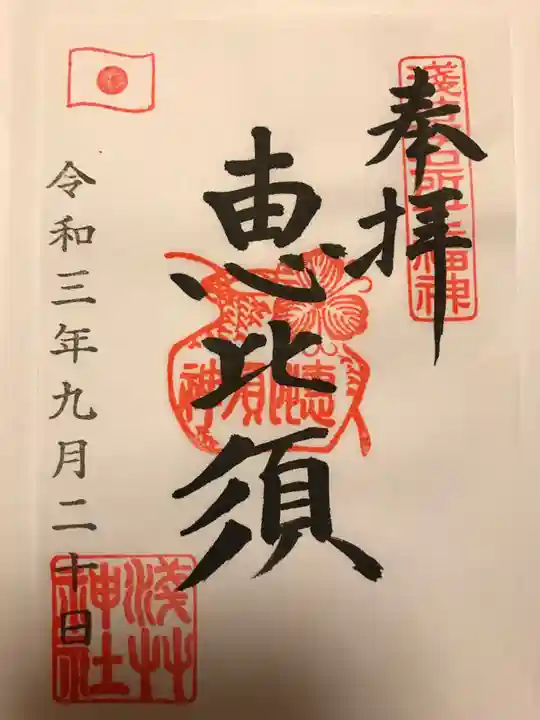 奉拝
浅草名所七福神
恵比須
恵比須神
令和三年九月二十日
浅草神社